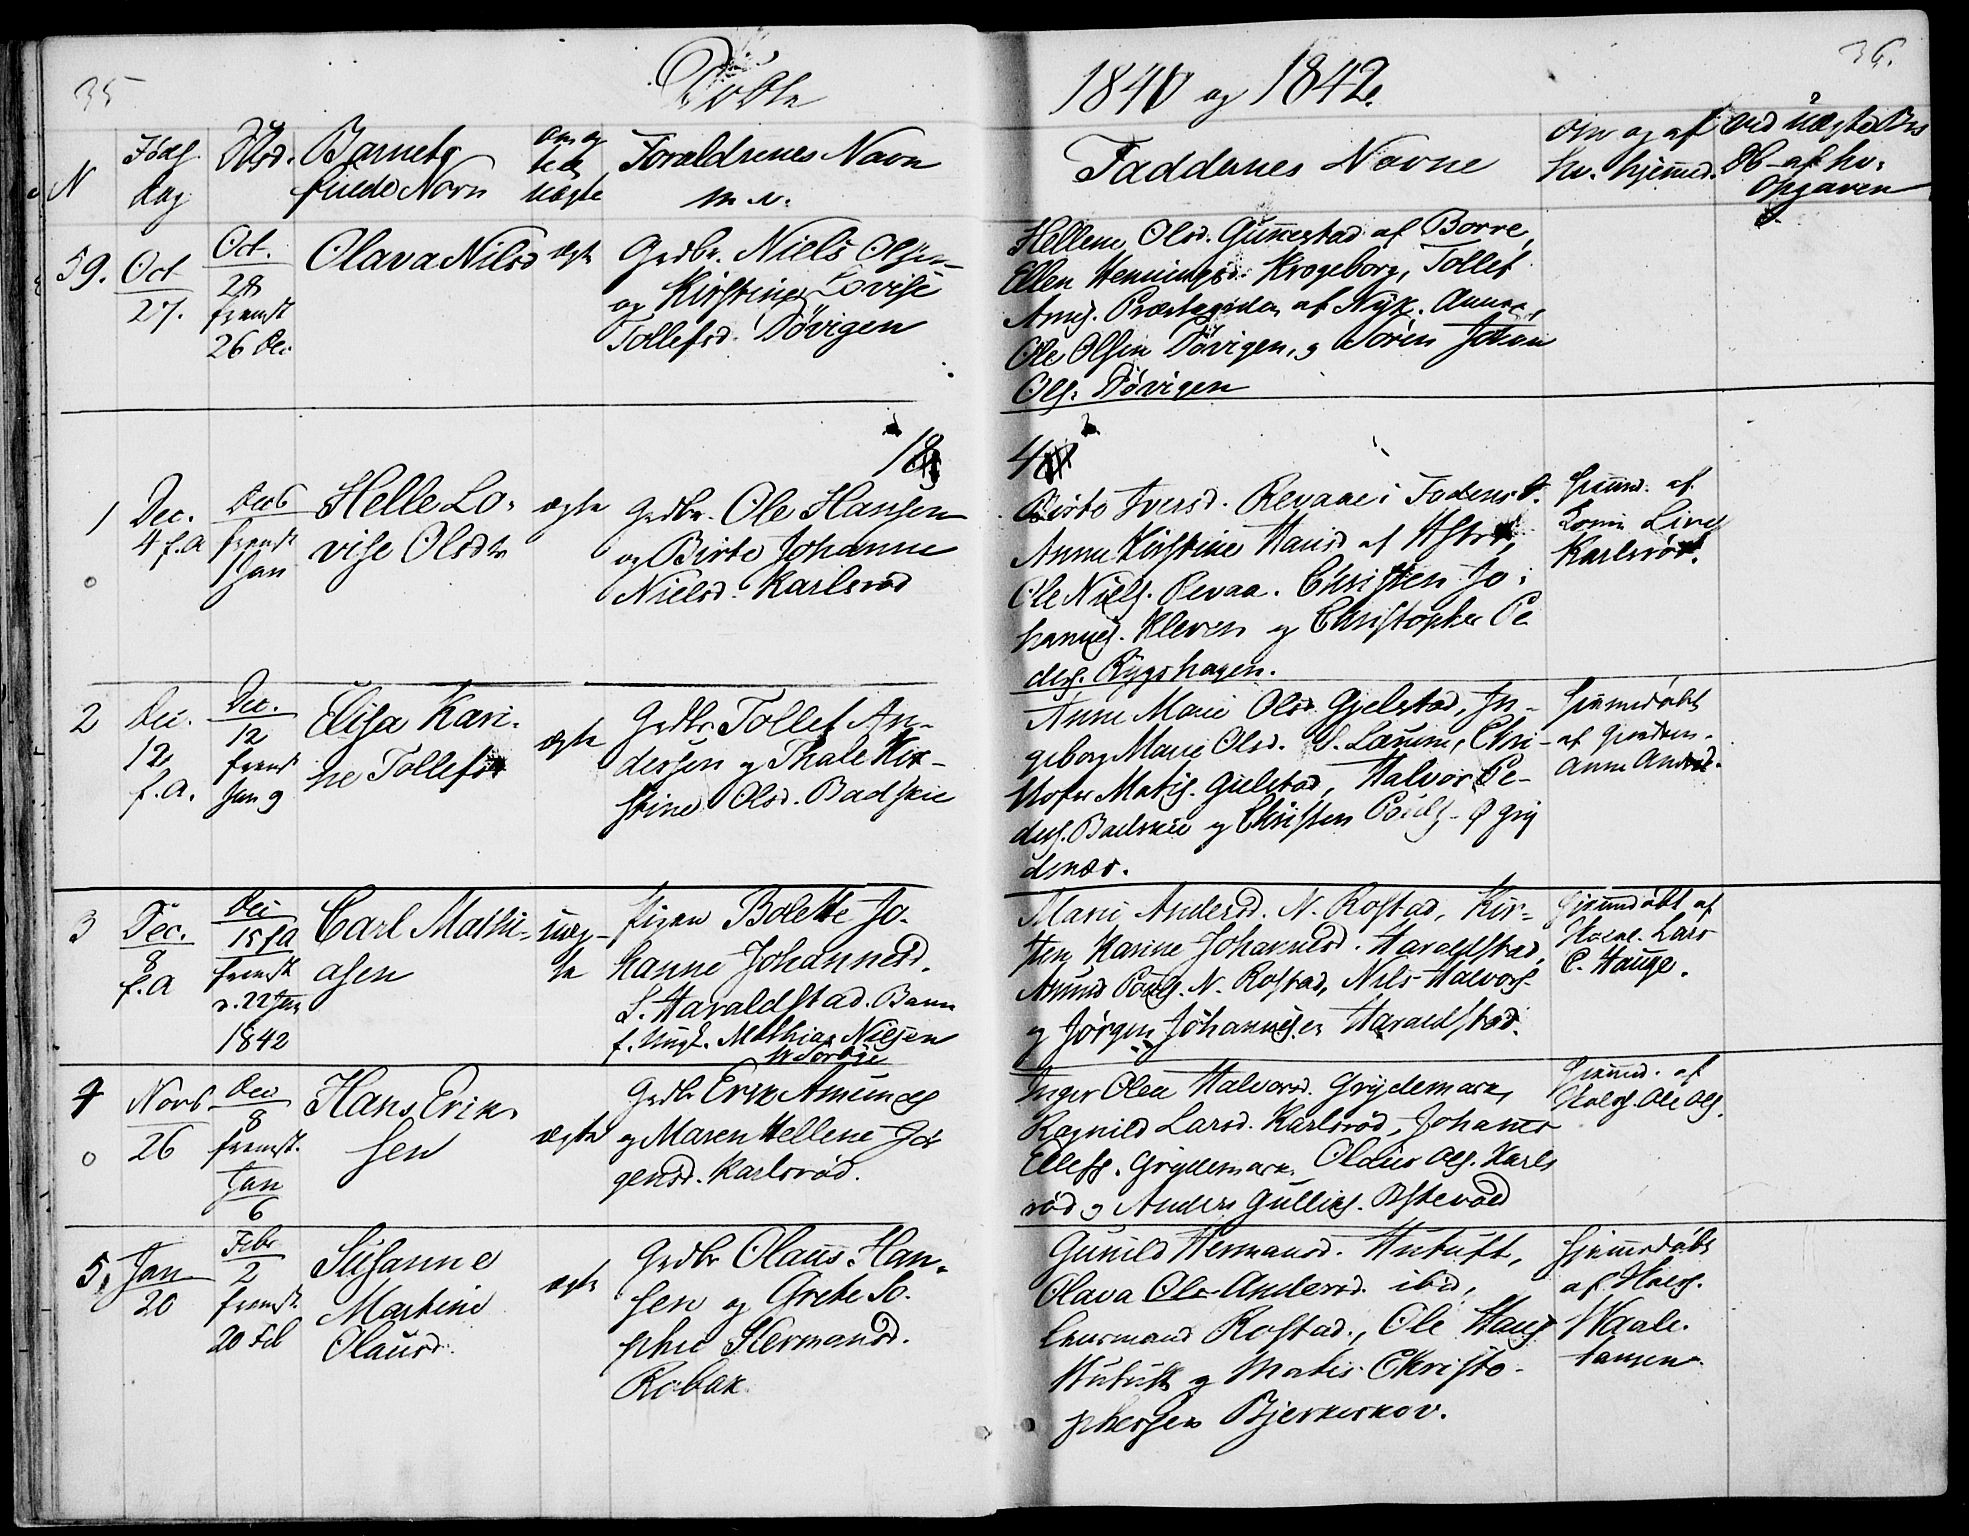 35
Døbte
1841 og 1842.
36.
N
Føds
dag
Barnets
fulde Navn
Forældrenes Navn
m. v.
Faddernes Navne
om og af
hv. hjemmed.
ved uægte Brs
af hv.
Opgaven
59.
Oct
27.
Oct.
28
fremst
26 Dec
Olava Nilsd
ægte
Grdbr. Niels Olsen
og Kirstine Lovise
Tollefsd. Døvigen
Hellene Olsd. Gunnestad af Borre,
Ellen Henningsd. Krogeborg, Tollef
af Nyk.
Ole Olsen Døvigen, og Søren Johan
Ols. Døvigen
18
4
1
Dec.
4 f.A
Decb
fremst
1 Jan
Helle Lo-
vise Olsdtr
ægte
Grdbr. Ole Hansen
og Birte Johanne
Nielsd. Karlsrød
Birte Iversd. Revaae i
Anne Kirstine Hansd af
Ole Niels. Revaa. Christen Jo-
hannes. Kleven og Christopher Pe
ders. Rygshagen.
hjemmd. af
Karlsrød.
2
Dec.
12
f.A.
Dec.
12
fremst
Jan 9
Elisa Kari-
ne Tollefsd
ægte
Grdbr Tollef An-
dersen og Thale Kir-
stine Olsd. Badskie
Anne Marie Olsd Gjelstad, In-
geborg Marie Olsd. Chri-
stofer Matis. Gielstad, Halvor Pe-
ders. Badskie og Christen Pouls.
hjemmedøbt
af
Anne Andrd.
3
Dec.
8
f.A
Dec
15 f.A
fremst
d. 22 Jan
1842
Carl Mathi-
asen
uæg-
te
Pigen Bolette Jo-
hanne Johannesd.
S. Haraldstad. Barn
f. Ungk. Mathias Nielsen
Marie Andersd. N. Rostad, Kir-
sten Karine Johannesd. Haraldstad,
Amund Pouls. N. Rostad, Nils Halvors.
og Jørgen Johannesen Haraldstad.
hjemmdøbt af
Lars
C. Hauge.
4
Novb
26
Dec
8
fremst.
Jan
6
Hans Erik-
sen
ægte
Grdbr Erik Amunds
og Maren Hellene Jør
gensd. Karlsrød.
Inger Olea Halvorsd. Grydemark,
Ragnild Larsd. Karlsrød, Johannes
Ellefs. Grydemark, Olaus Ols. Karls
rød og Anders Gulliks. Østevold
hjemmd. af
Ole Ols.
5.
Jan
20
Febr
2
fremst.
20 Feb
Susanne
Martine
Olausd.
ægte
Grdbr Olaus Han-
sen og Grete So-
phie Hermansd.
Robak
Gunild Hermansd. Hutuft,
Olava Ols Andersd. ibid,
Rostad, Ole Hans
Hutuft og Matis Christo-
phersen Bjerkeskov.
hjemmedøbt